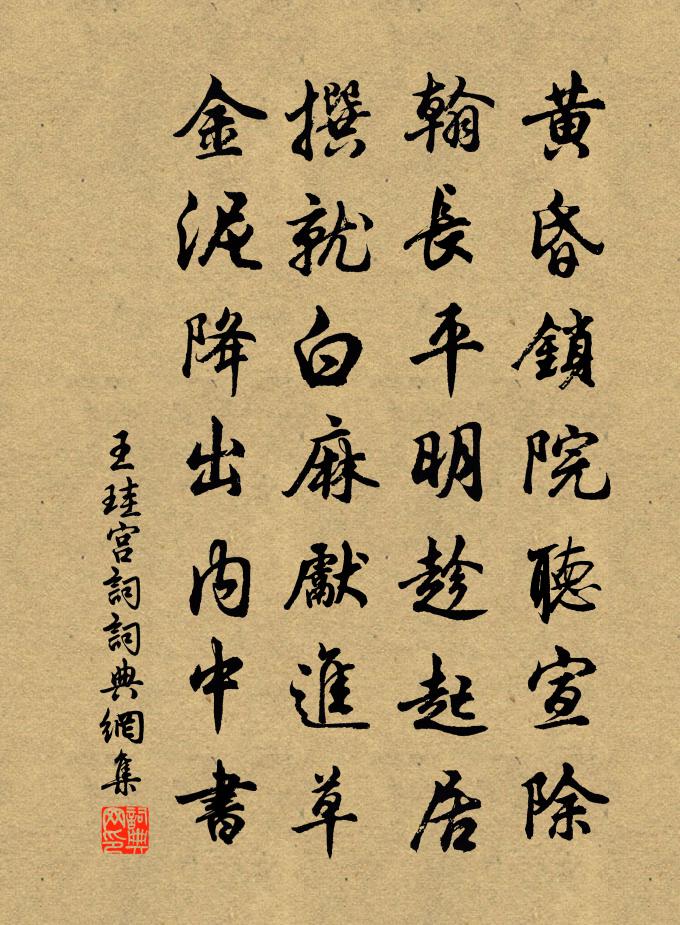 黄昏鎖院聽宣除
翰長平明趁起居
撰就白麻獻進草
金泥降出内中書
王珪宫詞詞典網集
詞典网印